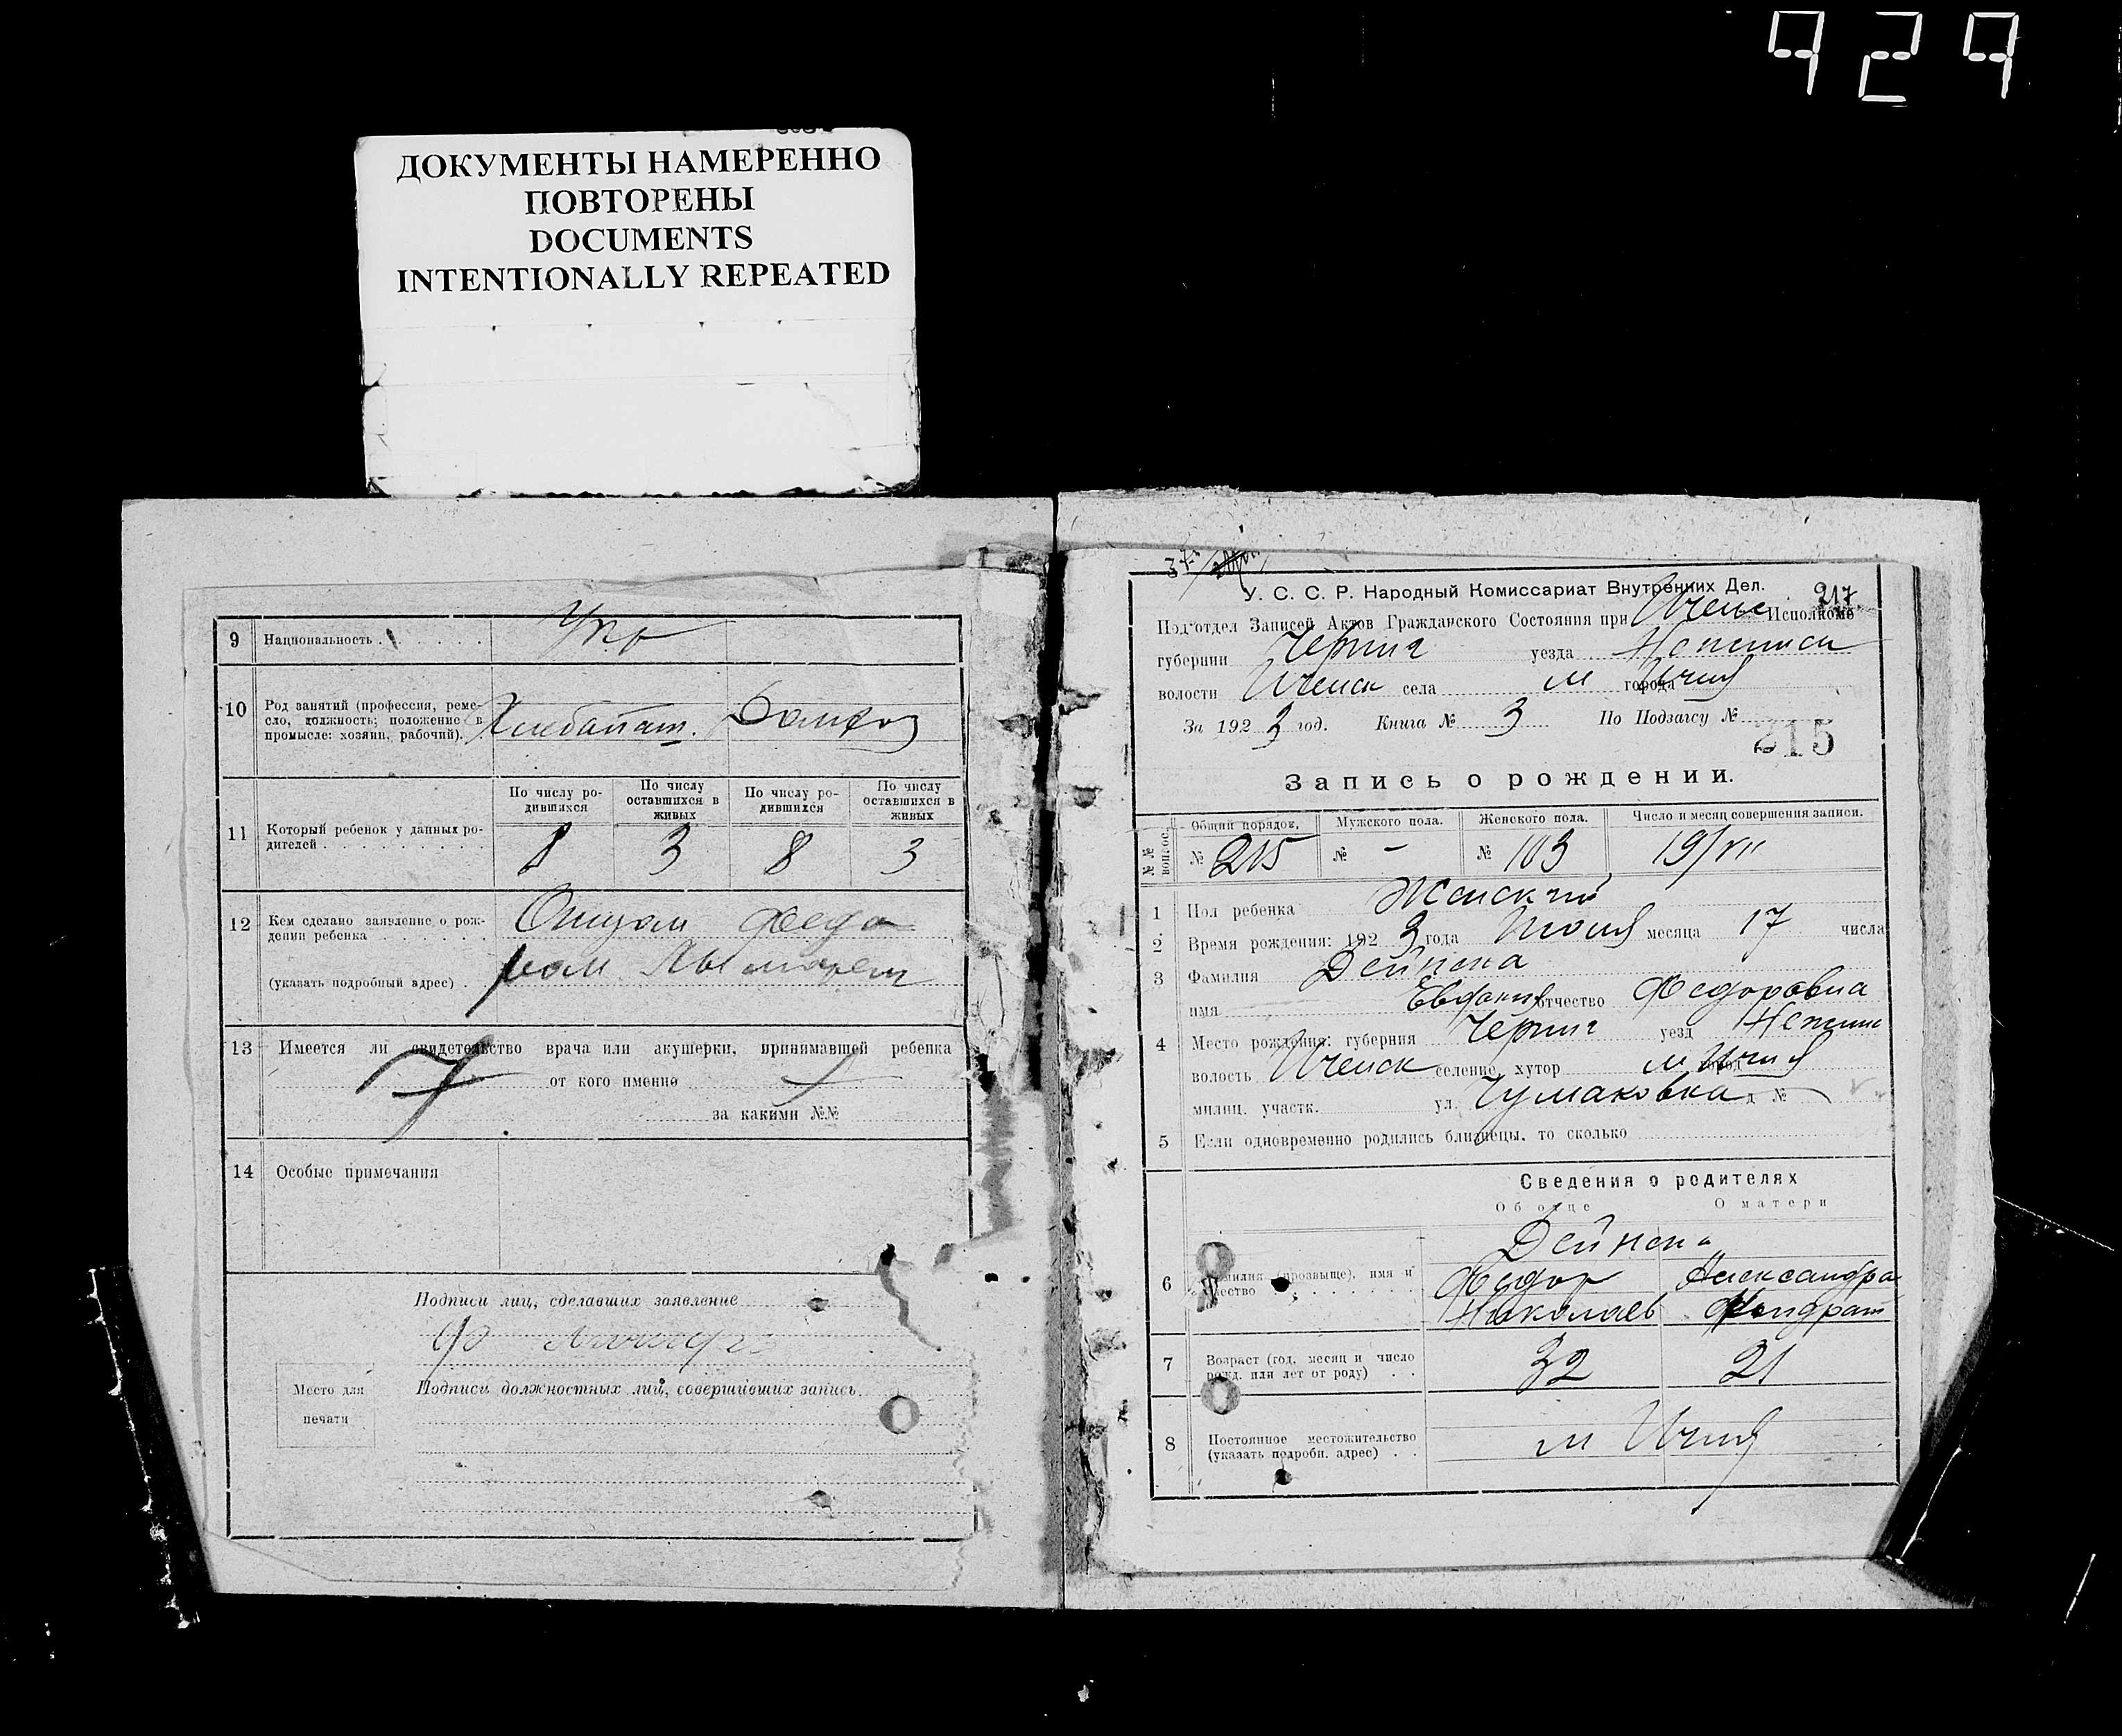 929
ДОКУМЕНТЫ НАМЕРЕННО
ПОВТОРЕНЫ
DOCUMENTS
INTENTIONALLY REPEATED
9 Национальность . Укр
10 Род занятий (профессия, реме-
сло, должность; положение в
промысле: хозяин, рабочий).
Хлебопаш. Домхоз
По числу ро-
дившихся
По числу
оставшихся в
живых
По числу ро-
дившихся
По числу
оставшихся в
живых
11 Который ребенок у данных ро-
дителей
8 3 8 3
12 Кем сделано заявление о рож-
дении ребенка
(указать подробный адрес)
Отцом Федо
ром
13 Имеется ли свидетельство врача или акушерки, принимавшей ребенка
от кого именно
за какими №№
14 Особые примечания
Подписи лиц, сделавших заявление
Подписи должностных лиц, совершивших запись
Место для
печати
37
У. С. С. Р. Народный Комиссариат Внутренних Дел. 217
Подотдел Записей Актов Гражданского Состояния при Ичен Исполкоме
губернии Черниг уезда Нежинск
волости Иченск села м города Ичня
За 1923 год. Книга № 3 По Подзагсу №
215
Запись о рождении.
№№ вопрос. Общий порядов. Мужского пола. Женского пола. Число и месяц совершения записи.
№ 215 № - № 103 19/VII
1 Пол ребенка Женский
2 Время рождения: 1923 года Июля месяца 17 числа
3 Фамилия Дейнека
имя Евдокия отчество Федоровна
4 Место рождения: губерния Черниг уезд Нежин
волость Иченск селение, хутор м Ичня город
милиц. участк. ул. Чумаковка д №
5 Если одновременно родились близнецы, то сколько
Сведения о родителях
Об отце О матери
Дейнека
6 Фамилия (прозвыще), имя и
чество
Федор Александра
Николаев Кондрат
7 Возраст (год, месяц и число
рожд. или лет от роду)
32 21
8 Постоянное местожительство
(указать подробн. адрес)
м Ичня